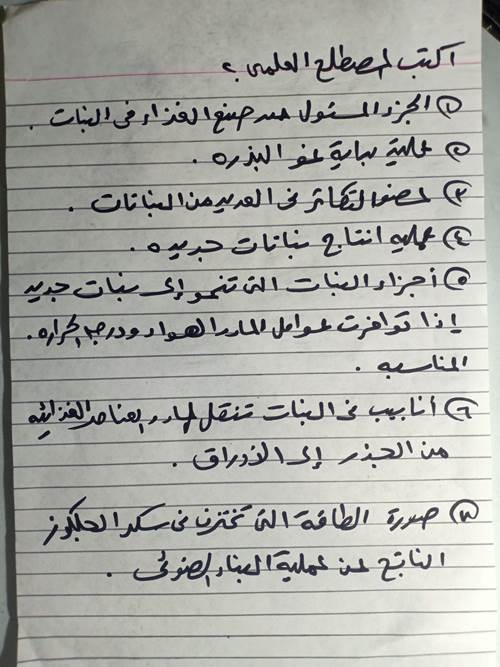 اكتب المصطلح العلمى :
① الجزء المسئول عن صنع الغذاء فى النبات .
② عملية بداية نمو البذره .
③ عضو التكاثر فى العديد من النباتات .
④ عمليه انتاج نباتات جديده .
⑤ أجزاء النبات التى تنمو إلى نبات جديد
إذا توافرت عوامل الماء والهواء ودرجه الحراره .
المناسبه .
⑥ أنابيب فى النبات تنقل الماء والعناصر الغذائيه
من الجذر إلى الأوراق .
⑦ صورة الطاقة التى تختزن فى سكر الجلكوز
الناتج عن عملية البناء الضوئى .